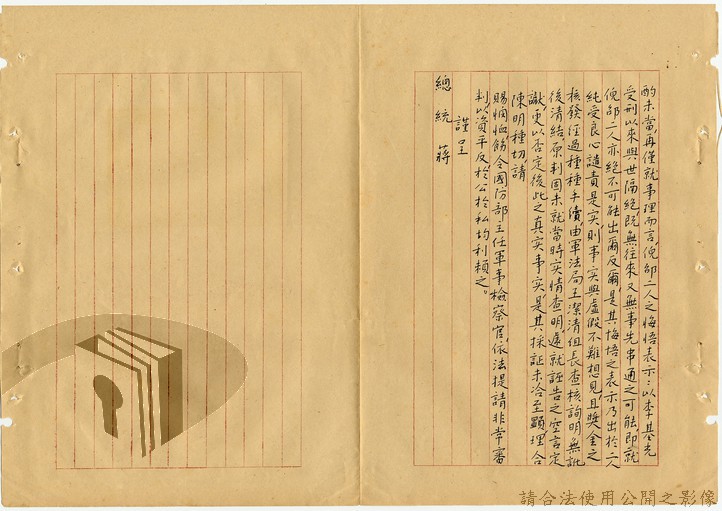 酌未當,再僅就事理而言,倪邰二人之悔悟表示:以李基光
受刑以來與世隔絕,既無往來,又無事先串通之可能,即就
倪邰二人亦絕不可能出爾反爾,是其悔悟之表示乃出於二人
純受良心譴責是实,則事实與虛假不難想見,且獎金之
核發經過種種手續,由軍法局王潔清組長查核詢明無訛
後清結,原判固未就當時实情查明,遽就誣告之空言定
讞,更以否定後此之真实事实,是其採証未洽至顯,理合
陳明種切,請
賜憫恤,飭令國防部主任軍事檢察官,依法提請非常審
判,以資平反,於公於私均利賴之。
謹呈
總統 蔣
請合法使用公開之影像